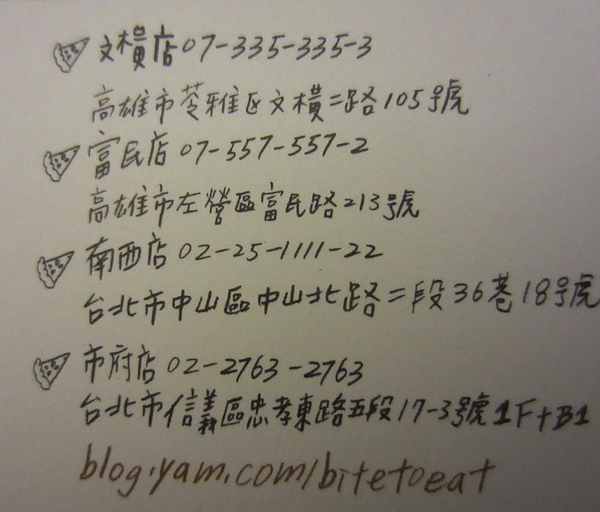 文橫店 07-335-335-3
高雄市苓雅区文橫二路105号虎
富民店 07-557-557-2
高雄市左營區富民路213號
南西店 02-25-1111-22
台北市中山區中山北路二段36巷18号虎
市府店 02-2763-2763
台北市信義區忠孝東路五段17-3號1F+B1
blog.yam.com/bitetoeat